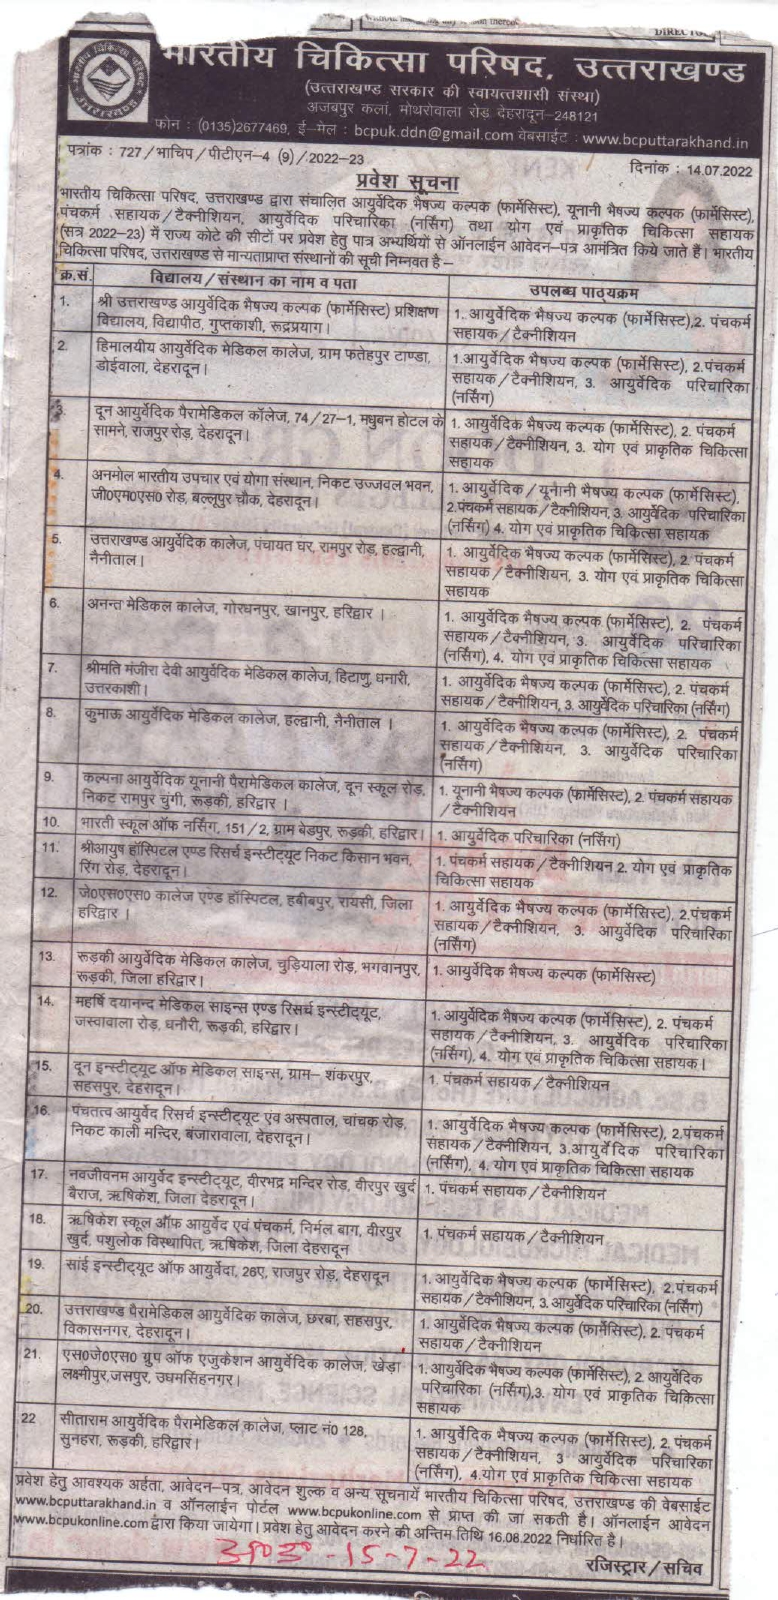 DIRECTOR
भारतीय चिकित्सा परिषद, उत्तराखण्ड
(उत्तराखण्ड सरकार की स्वायत्तशासी संस्था)
अजबपुर कलां, मोथरोवाला रोड़ देहरादून-248121
फोन : (0135)2677469, ई-मेल : bcpuk.ddn@gmail.com वेबसाईट : www.bcputtarakhand.in
पत्रांक : 727/भाचिप/पीटीएन-4 (9)/2022-23
दिनांक : 14.07.2022
प्रवेश सूचना
भारतीय चिकित्सा परिषद, उत्तराखण्ड द्वारा संचालित आयुर्वेदिक भैषज्य कल्पक (फार्मेसिस्ट), यूनानी भैषज्य कल्पक (फार्मेसिस्ट),
पंचकर्म सहायक/टैक्नीशियन, आयुर्वेदिक परिचारिका (नर्सिंग) तथा योग एवं प्राकृतिक चिकित्सा सहायक
(सत्र 2022-23) में राज्य कोटे की सीटों पर प्रवेश हेतु पात्र अभ्यर्थियों से ऑनलाईन आवेदन-पत्र आमंत्रित किये जाते हैं। भारतीय
चिकित्सा परिषद, उत्तराखण्ड से मान्यताप्राप्त संस्थानों की सूची निम्नवत है –
क्र.सं. विद्यालय/संस्थान का नाम व पता उपलब्ध पाठ्यक्रम
1. श्री उत्तराखण्ड आयुर्वेदिक भैषज्य कल्पक (फार्मेसिस्ट) प्रशिक्षण
विद्यालय, विद्यापीठ, गुप्तकाशी, रूद्रप्रयाग।
1. आयुर्वेदिक भैषज्य कल्पक (फार्मेसिस्ट),2. पंचकर्म
सहायक/टैक्नीशियन
2. हिमालयीय आयुर्वेदिक मेडिकल कालेज, ग्राम फतेहपुर टाण्डा,
डोईवाला, देहरादून।
1.आयुर्वेदिक भैषज्य कल्पक (फार्मेसिस्ट), 2.पंचकर्म
सहायक/टैक्नीशियन, 3. आयुर्वेदिक परिचारिका
(नर्सिंग)
3. दून आयुर्वेदिक पैरामेडिकल कॉलेज, 74/27-1, मधुबन होटल के
सामने, राजपुर रोड़, देहरादून।
1. आयुर्वेदिक भैषज्य कल्पक (फार्मेसिस्ट), 2. पंचकर्म
सहायक/टैक्नीशियन, 3. योग एवं प्राकृतिक चिकित्सा
सहायक
4. अनमोल भारतीय उपचार एवं योगा संस्थान, निकट उज्जवल भवन,
जी0एम0एस0 रोड़, बल्लूपुर चौक, देहरादून।
1. आयुर्वेदिक/यूनानी भैषज्य कल्पक (फार्मेसिस्ट),
2.पंचकर्म सहायक/टैक्नीशियन, 3. आयुर्वेदिक परिचारिका
(नर्सिंग) 4. योग एवं प्राकृतिक चिकित्सा सहायक
5. उत्तराखण्ड आयुर्वेदिक कालेज, पंचायत घर, रामपुर रोड़, हल्द्वानी,
नैनीताल।
1. आयुर्वेदिक भैषज्य कल्पक (फार्मेसिस्ट), 2. पंचकर्म
सहायक/टैक्नीशियन, 3. योग एवं प्राकृतिक चिकित्सा
सहायक
6. अनन्त मेडिकल कालेज, गोरधनपुर, खानपुर, हरिद्वार ।
1. आयुर्वेदिक भैषज्य कल्पक (फार्मेसिस्ट), 2. पंचकर्म
सहायक/टैक्नीशियन, 3. आयुर्वेदिक परिचारिका
(नर्सिंग), 4. योग एवं प्राकृतिक चिकित्सा सहायक
7. श्रीमति मंजीरा देवी आयुर्वेदिक मेडिकल कालेज, हिटाणु, धनारी,
उत्तरकाशी।
1. आयुर्वेदिक भैषज्य कल्पक (फार्मेसिस्ट), 2. पंचकर्म
सहायक/टैक्नीशियन, 3. आयुर्वेदिक परिचारिका (नर्सिंग)
8. कुमाऊ आयुर्वेदिक मेडिकल कालेज, हल्द्वानी, नैनीताल ।
1. आयुर्वेदिक भैषज्य कल्पक (फार्मेसिस्ट), 2. पंचकर्म
सहायक/टैक्नीशियन, 3. आयुर्वेदिक परिचारिका
(नर्सिंग)
9. कल्पना आयुर्वेदिक यूनानी पैरामेडिकल कालेज, दून स्कूल रोड़,
निकट रामपुर चुंगी, रूड़की, हरिद्वार ।
1. यूनानी भैषज्य कल्पक (फार्मेसिस्ट), 2. पंचकर्म सहायक
/टैक्नीशियन
10. भारती स्कूल ऑफ नर्सिंग, 151/2, ग्राम बेडपुर, रूड़की, हरिद्वार।
1. आयुर्वेदिक परिचारिका (नर्सिंग)
11. श्रीआयुष हॉस्पिटल एण्ड रिसर्च इन्स्टीट्यूट निकट किसान भवन,
रिंग रोड़, देहरादून।
1. पंचकर्म सहायक/टैक्नीशियन 2. योग एवं प्राकृतिक
चिकित्सा सहायक
12. जे0एस0एस0 कालेज एण्ड हॉस्पिटल, हबीबपुर, रायसी, जिला
हरिद्वार ।
1. आयुर्वेदिक भैषज्य कल्पक (फार्मेसिस्ट), 2.पंचकर्म
सहायक/टैक्नीशियन, 3. आयुर्वेदिक परिचारिका
(नर्सिंग)
13. रूड़की आयुर्वेदिक मेडिकल कालेज, चुड़ियाला रोड़, भगवानपुर,
रूड़की, जिला हरिद्वार।
1. आयुर्वेदिक भैषज्य कल्पक (फार्मेसिस्ट)
14. महर्षि दयानन्द मेडिकल साइन्स एण्ड रिसर्च इन्स्टीट्यूट,
जस्वावाला रोड़, धनौरी, रूड़की, हरिद्वार।
1. आयुर्वेदिक भैषज्य कल्पक (फार्मेसिस्ट), 2. पंचकर्म
सहायक/टैक्नीशियन, 3. आयुर्वेदिक परिचारिका
(नर्सिंग), 4. योग एवं प्राकृतिक चिकित्सा सहायक।
15. दून इन्स्टीट्यूट ऑफ मेडिकल साइन्स, ग्राम- शंकरपुर,
सहसपुर, देहरादून।
1. पंचकर्म सहायक/टैक्नीशियन
16. पंचतत्व आयुर्वेद रिसर्च इन्स्टीट्यूट एंव अस्पताल, चांचक रोड़,
निकट काली मन्दिर, बंजारावाला, देहरादून।
1. आयुर्वेदिक भैषज्य कल्पक (फार्मेसिस्ट), 2.पंचकर्म
सहायक/टैक्नीशियन, 3.आयुर्वेदिक परिचारिका
(नर्सिंग), 4. योग एवं प्राकृतिक चिकित्सा सहायक
17. नवजीवनम आयुर्वेद इन्स्टीट्यूट, वीरभद्र मन्दिर रोड, वीरपुर खुर्द
बैराज, ऋषिकेश, जिला देहरादून।
1. पंचकर्म सहायक/टैक्नीशियन
18. ऋषिकेश स्कूल ऑफ आयुर्वेद एवं पंचकर्म, निर्मल बाग, वीरपुर
खुर्द, पशुलोक विस्थापित, ऋषिकेश, जिला देहरादून
1. पंचकर्म सहायक/टैक्नीशियन
19. सांई इन्स्टीट्यूट ऑफ आयुर्वेदा, 26ए, राजपुर रोड़, देहरादून
1. आयुर्वेदिक भैषज्य कल्पक (फार्मेसिस्ट), 2.पंचकर्म
सहायक/टैक्नीशियन, 3. आयुर्वेदिक परिचारिका (नर्सिंग)
20. उत्तराखण्ड पैरामेडिकल आयुर्वेदिक कालेज, छरबा, सहसपुर,
विकासनगर, देहरादून।
1. आयुर्वेदिक भैषज्य कल्पक (फार्मेसिस्ट), 2. पंचकर्म
सहायक/टैक्नीशियन
21. एस0जे0एस0 ग्रुप ऑफ एजुकेशन आयुर्वेदिक कालेज, खेड़ा
लक्ष्मीपुर,जसपुर, उधमसिंहनगर।
1. आयुर्वेदिक भैषज्य कल्पक (फार्मेसिस्ट), 2. आयुर्वेदिक
परिचारिका (नर्सिंग),3. योग एवं प्राकृतिक चिकित्सा
सहायक
22 सीताराम आयुर्वेदिक पैरामेडिकल कालेज, प्लाट नं0 128,
सुनहरा, रूड़की, हरिद्वार।
1. आयुर्वेदिक भैषज्य कल्पक (फार्मेसिस्ट), 2. पंचकर्म
सहायक/टैक्नीशियन, 3 आयुर्वेदिक परिचारिका
(नर्सिंग), 4.योग एवं प्राकृतिक चिकित्सा सहायक
प्रवेश हेतु आवश्यक अर्हता, आवेदन-पत्र, आवेदन शुल्क व अन्य सूचनायें भारतीय चिकित्सा परिषद, उत्तराखण्ड की वेबसाईट
www.bcputtarakhand.in व ऑनलॉईन पोर्टल www.bcpukonline.com से प्राप्त की जा सकती है। ऑनलाईन आवेदन
www.bcpukonline.com द्वारा किया जायेगा। प्रवेश हेतु आवेदन करने की अन्तिम तिथि 16.08.2022 निर्धारित है।
रजिस्ट्रार/सचिव
अ0उ0-15-7-22